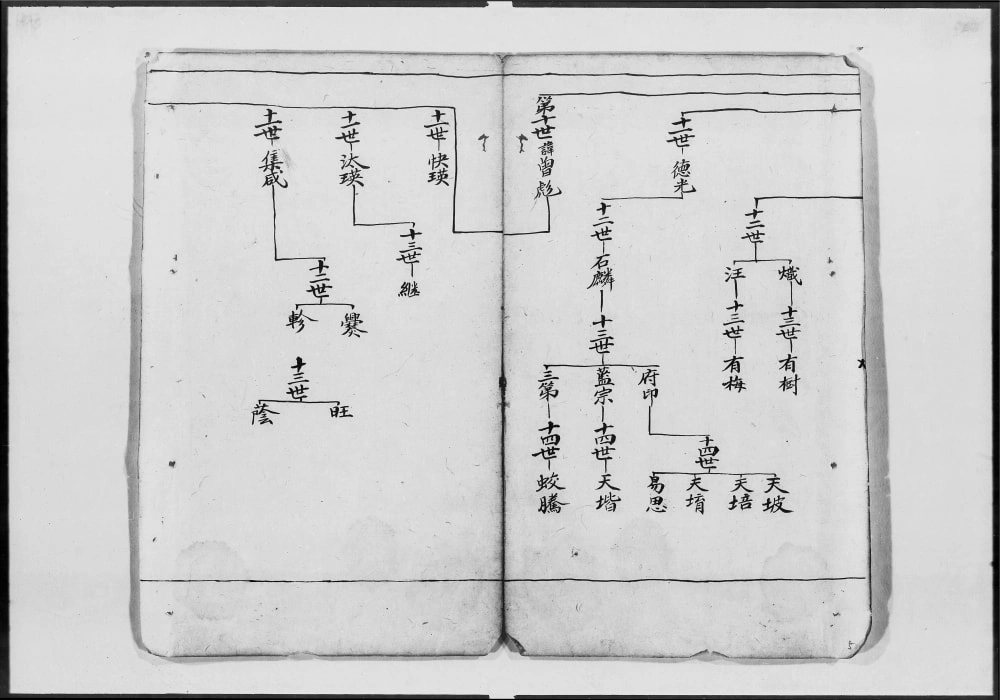 十二世
熾
十三世
有樹
汪
十三世
有梅
十一世
德光
十二世
石麟
十三世
府印
十四世
天坡
天培
天堉
易思
藍宗
十四世
天堦
三第
十四世
蛟騰
第十世諱曽彪
十一世
快瑛
十一世
汰瑛
十三世
継
十一世
集咸
十二世
爨
軫
十三世
旺
蔭
5